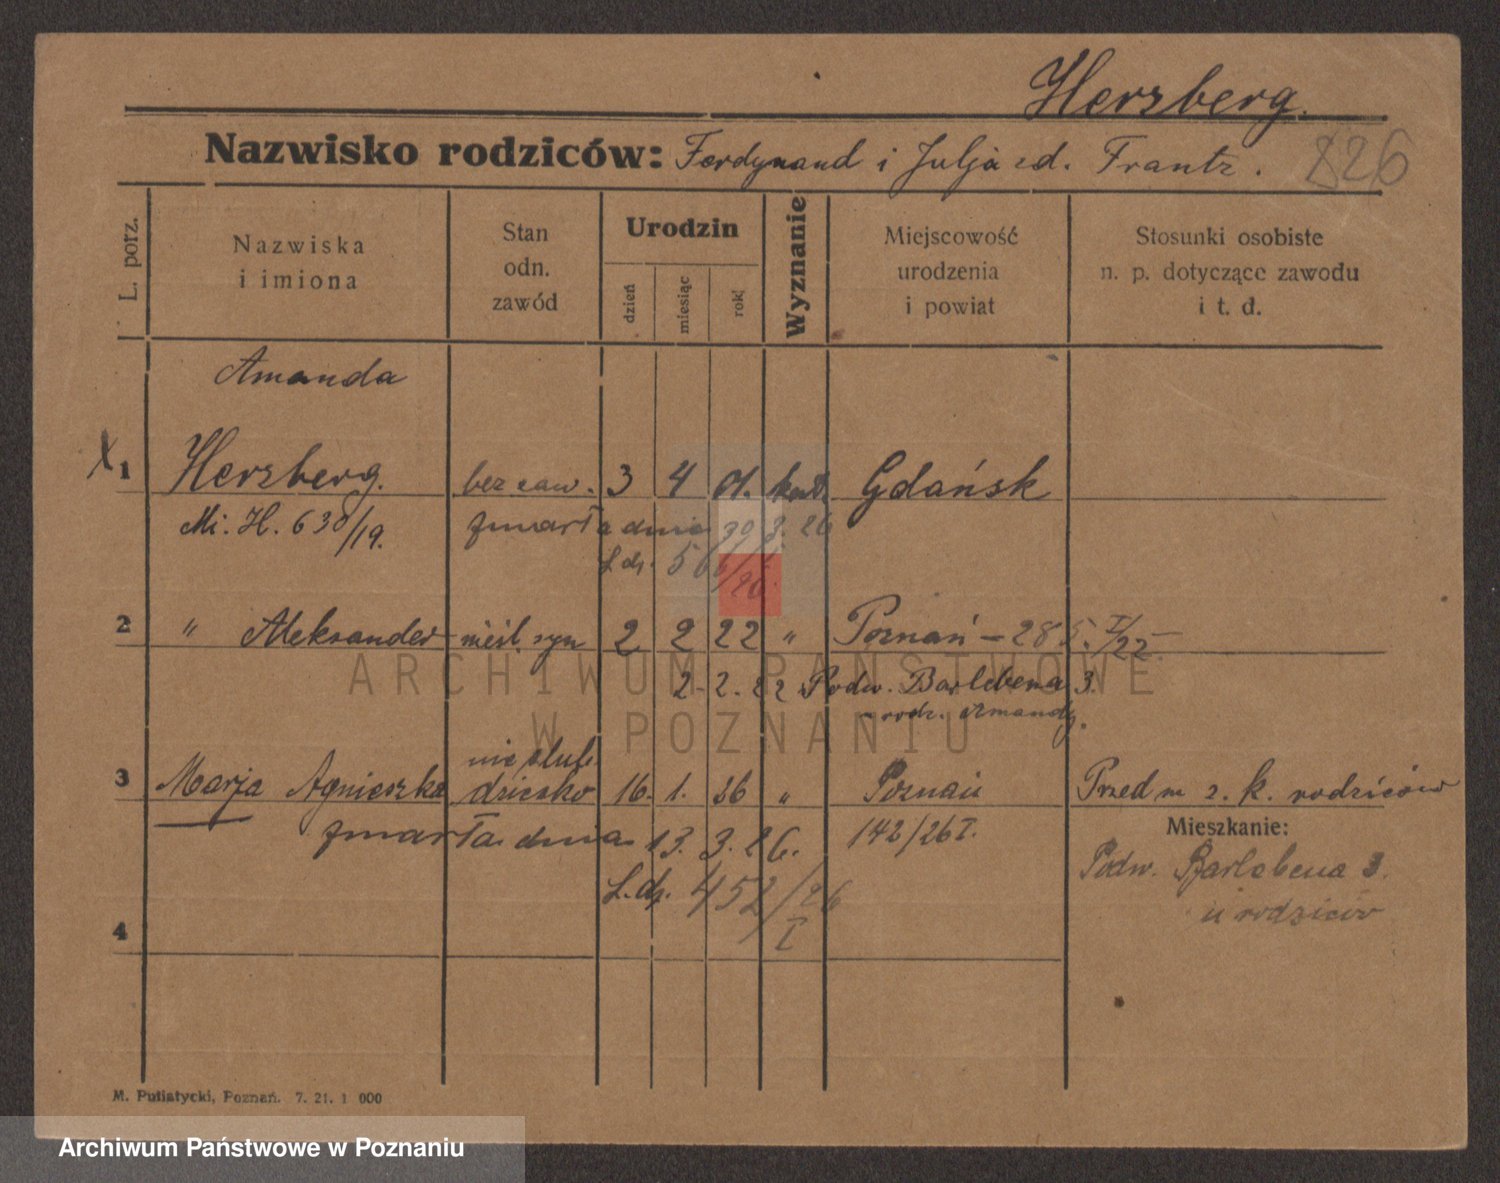 Herzberg.
Nazwisko rodziców: Ferdynand i Julja zd. Frantz. 826
L. porz.
Nazwiska i imiona
Stan odn. zawód
Urodzin
dzień
miesiąc
rok
Wyznanie
Miejscowość urodzenia i powiat
Stosunki osobiste n. p. dotyczące zawodu i t. d.
Amanda
X 1 Herzberg. bez zaw. 3 4 01. kat. Gdańsk
Mi. H. 630/19. zmarła dnia 30/3. 26
L. dz. 566/26
2 " Aleksander nieśl. syn 2 2 22 " Poznań - 285. I/22
2. 2. 22 Podw. Barlebena 3.
rodz. Amandy.
nieślub.
3 Marja Agnieszka dziecko 16. 1. 26 " Poznań Przedm z. k. rodziców
zmarła dnia 13. 3. 26. 142/26 I. Mieszkanie:
L. dz. 452/26 I Podw. Barlebena 3.
u rodziców
4
M. Putiatycki, Poznań. 7. 21. 1 000
ARCHIWUM PAŃSTWOWE
W POZNANIU
Archiwum Państwowe w Poznaniu